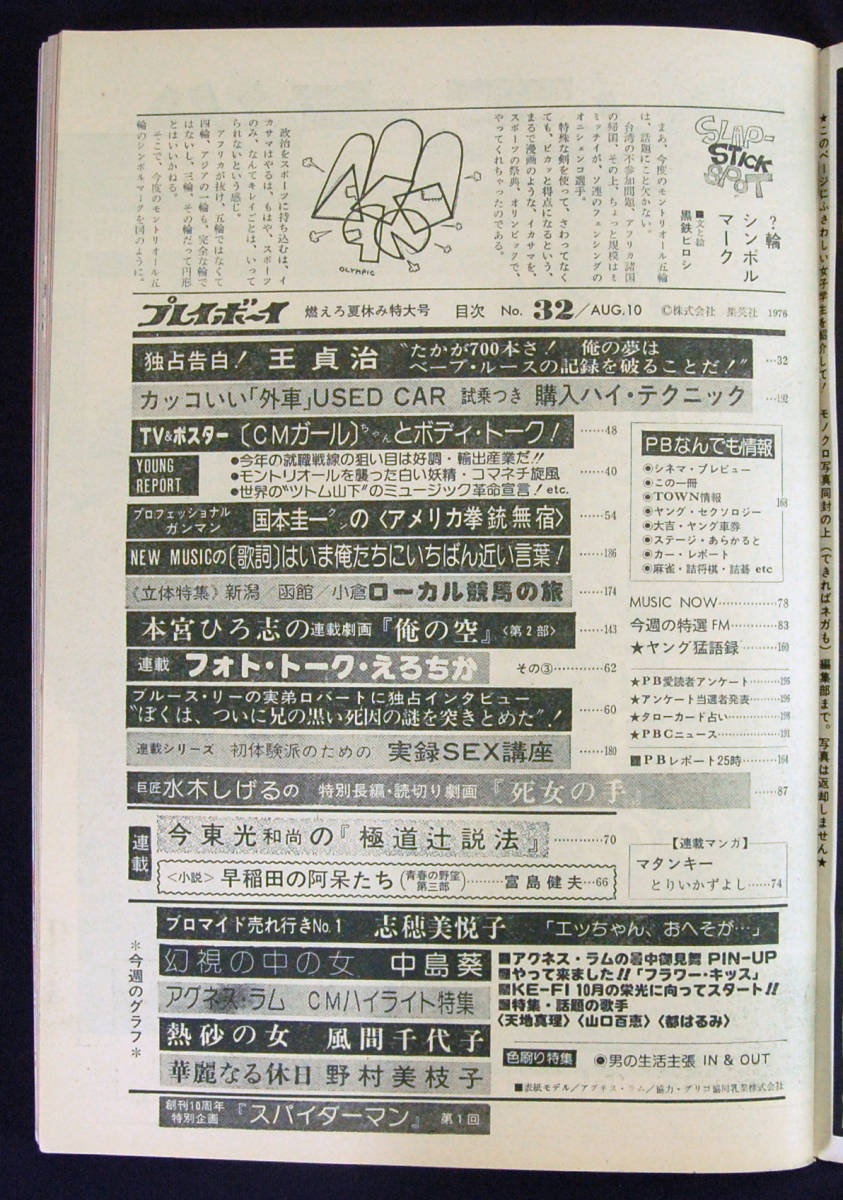 SLAP-
STICK
SPOT
?輪
シンボル
マーク
■文と絵
黒鉄ヒロシ
まあ、今度のモントリオール五輪
は、話題にこと欠かない。
台湾の不参加問題、アフリカ諸国
の帰国、その上、ちょっと規模はミ
ミッチイが、ソ連のフェンシングの
オニシェンコ選手。
特殊な剣を使って、さわってなく
ても、ピカッと得点になるという、
まるで漫画のような、イカサマを、
スポーツの祭典、オリンピックで、
やってくれちゃったのである。
OLYMPIC
政治をスポーツに持ち込むは、イ
カサマはやるは、もはや、スポーツ
のみ、なんてキレイごとは、いって
られないという感じ。
アフリカが抜け、五輪ではなくて
四輪、アジアの一輪も、完全な輪で
はないし、三輪、その輪だって円形
とはいいかねる。
そこで、今度のモントリオール五
輪のシンボルマークを図のように。
プレイボーイ 燃えろ夏休み特大号 目次 No. 32/AUG.10 ©株式会社 集英社 1976
独占告白! 王貞治 “たかが700本さ! 俺の夢は
ベーブ・ルースの記録を破ることだ!” …32
カッコいい「外車」USED CAR 試乗つき 購入ハイ・テクニック …192
TV&ポスター〔CMガール〕ちゃんとボディ・トーク! ……48
YOUNG
REPORT
●今年の就職戦線の狙い目は好調・輸出産業だ!!
●モントリオールを襲った白い妖精・コマネチ旋風 ……40
●世界の“ツトム山下”のミュージック革命宣言! etc.
プロフェッショナル
ガンマン 国本圭一クンの〈アメリカ拳銃無宿〉 ……54
NEW MUSICの〔歌詞〕はいま俺たちにいちばん近い言葉! ……186
《立体特集》新潟/函館/小倉ローカル競馬の旅 ……174
本宮ひろ志の連載劇画『俺の空』〈第2部〉 ……143
連載 フォト・トーク・えろちか その③………62
ブルース・リーの実弟ロバートに独占インタビュー
“ぼくは、ついに兄の黒い死因の謎を突きとめた”! ……60
連載シリーズ 初体験派のための 実録SEX講座 ……180
巨匠水木しげるの 特別長編・読切り劇画『死女の手』 ……87
PBなんでも情報
◉シネマ・プレビュー
◉この一冊
◉TOWN情報
◉ヤング・セクソロジー
◉大吉・ヤング車券
◉ステージ・あらかると
◉カー・レポート
◉麻雀・詰将棋・詰碁 etc
168
MUSIC NOW……………78
今週の特選FM……………83
★ヤング猛語録……………160
★PB愛読者アンケート………195
★アンケート当選者発表………196
★タローカード占い………198
★PBCニュース………191
PBレポート25時………164
連載
今東光和尚の『極道辻説法』 …………70
〈小説〉早稲田の阿呆たち(青春の野望
第三部)………富島健夫…66
【連載マンガ】
マタンキー
とりいかずよし……74
*今週のグラフ*
ブロマイド売れ行きNo.1 志穂美悦子 「エッちゃん、おへそが…」
幻視の中の女 中島葵
アグネス・ラム CMハイライト特集
熱砂の女 風間千代子
華麗なる休日 野村美枝子
■アグネス・ラムの暑中御見舞 PIN-UP
■やって来ました!!「フラワー・キッス」
■KE-FI 10月の栄光に向ってスタート!!
■特集・話題の歌手
〈天地真理〉〈山口百恵〉〈都はるみ〉
色刷り特集 ◉男の生活主張 IN & OUT
■表紙モデル/アグネス・ラム/協力・グリコ協同乳業株式会社
創刊10周年
特別企画 『スパイダーマン』 第1回
★このページにふさわしい女子学生を紹介して! モノクロ写真同封の上(できればネガも)編集部まで。写真は返却しません★